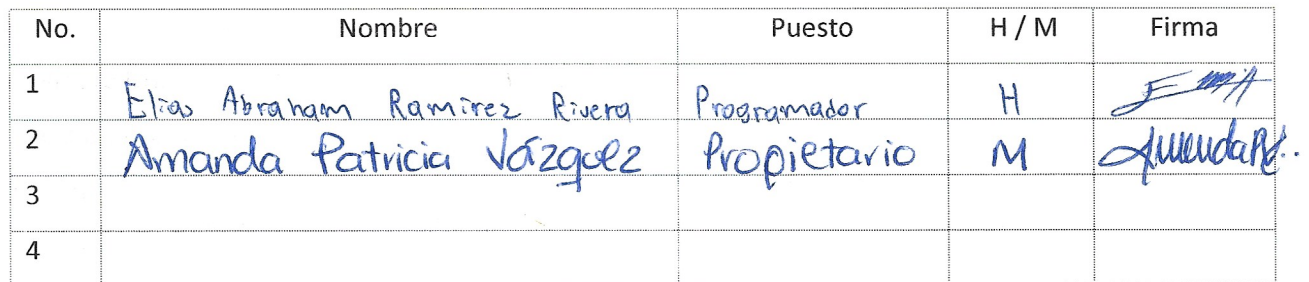 No. Nombre Puesto H / M Firma
1 Elias Abraham Ramirez Rivera Programador H
2 Amanda Patricia Vázquez Propietario M
3
4